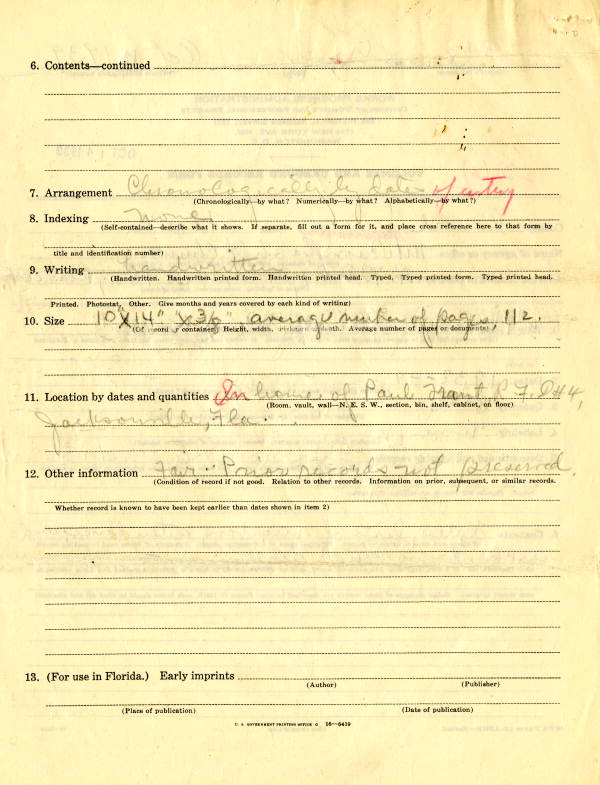 6. Contents—continued
7. Arrangement Chronologically by dates of entry
(Chronologically—by what? Numerically—by what? Alphabetically—by what?)
8. Indexing none
(Self-contained—describe what it shows. If separate, fill out a form for it, and place cross reference here to that form by
title and identification number)
9. Writing handwritten
(Handwritten. Handwritten printed form. Handwritten printed head. Typed. Typed printed form. Typed printed head.
Printed. Photostat. Other. Give months and years covered by each kind of writing)
10. Size 10" X 14" X 3/8" average number of pages, 112.
(Of record or container. Height, width, depth. Average number of pages or documents)
11. Location by dates and quantities In home of Paul R.F.D #4,
(Room, vault, wall—N. E. S. W., section, bin, shelf, cabinet, on floor)
Jacksonville, Fla.
12. Other information Fair. Prior records not preserved.
(Condition of record if not good. Relation to other records. Information on prior, subsequent, or similar records.
Whether record is known to have been kept earlier than dates shown in item 2)
13. (For use in Florida.) Early imprints
(Author) (Publisher)
(Place of publication) (Date of publication)
U. S. GOVERNMENT PRINTING OFFICE 16—6419